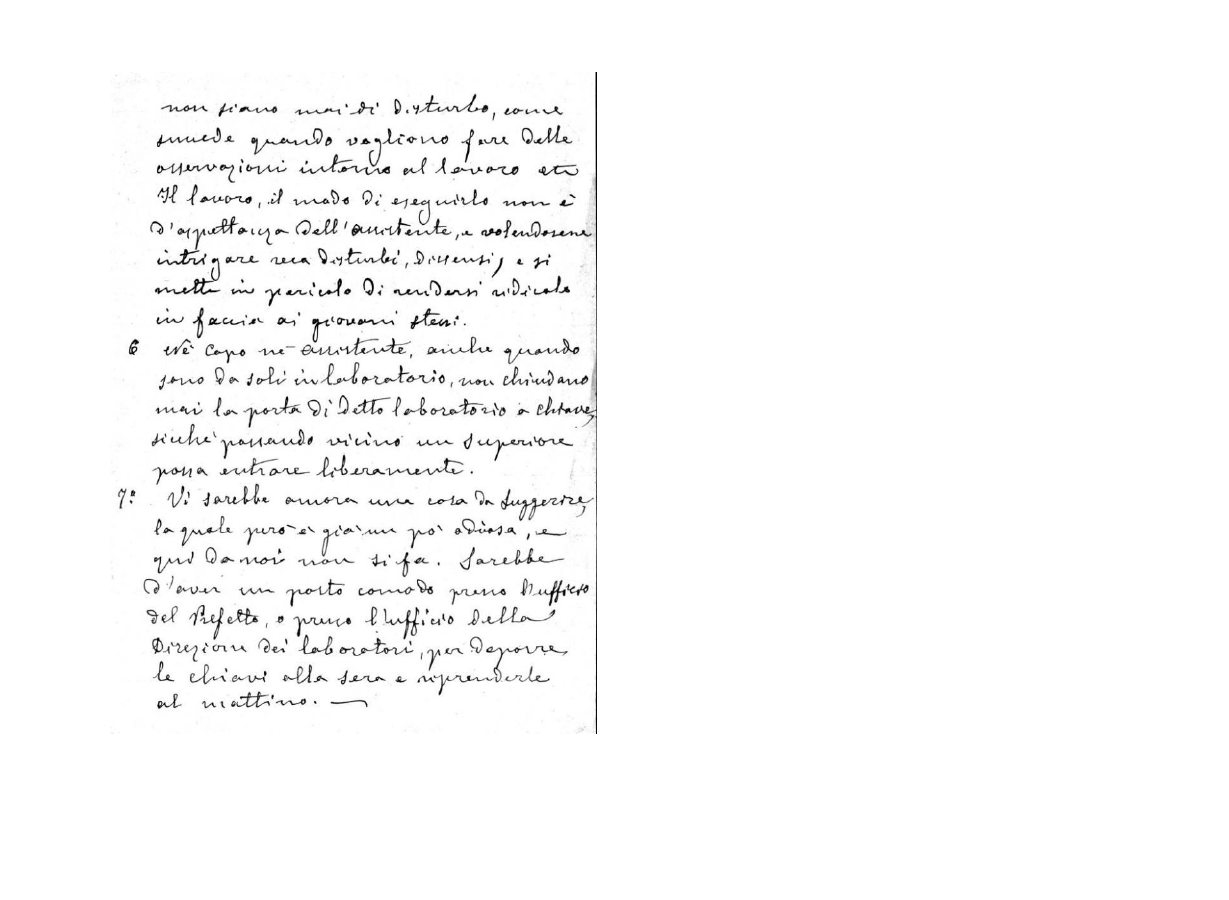 non siano mai di disturbo, come
succede quando vogliono fare delle
osservazioni intorno al lavoro etc
Il lavoro, il modo di eseguirlo non è
d'aspettanza dell'assistente, e volendosene
intrigare reca disturbi, dissensi, e si
mette in pericolo di rendersi ridicolo
in faccia ai giovani stessi.
6 Nè Capo nè assistente, anche quando
sono da soli in laboratorio, non chiudano
mai la porta di detto laboratorio a chiave,
sicchè passando vicino un Superiore
possa entrare liberamente.
7º Vi sarebbe ancora una cosa da suggerire,
la quale però è già un pò odiosa, e
qui da noi non si fa. Sarebbe
d'aver un posto comodo presso l'ufficio
del Prefetto, o presso l'ufficio della
Direzione dei laboratori, per deporre
le chiavi alla sera e riprenderle
al mattino. —